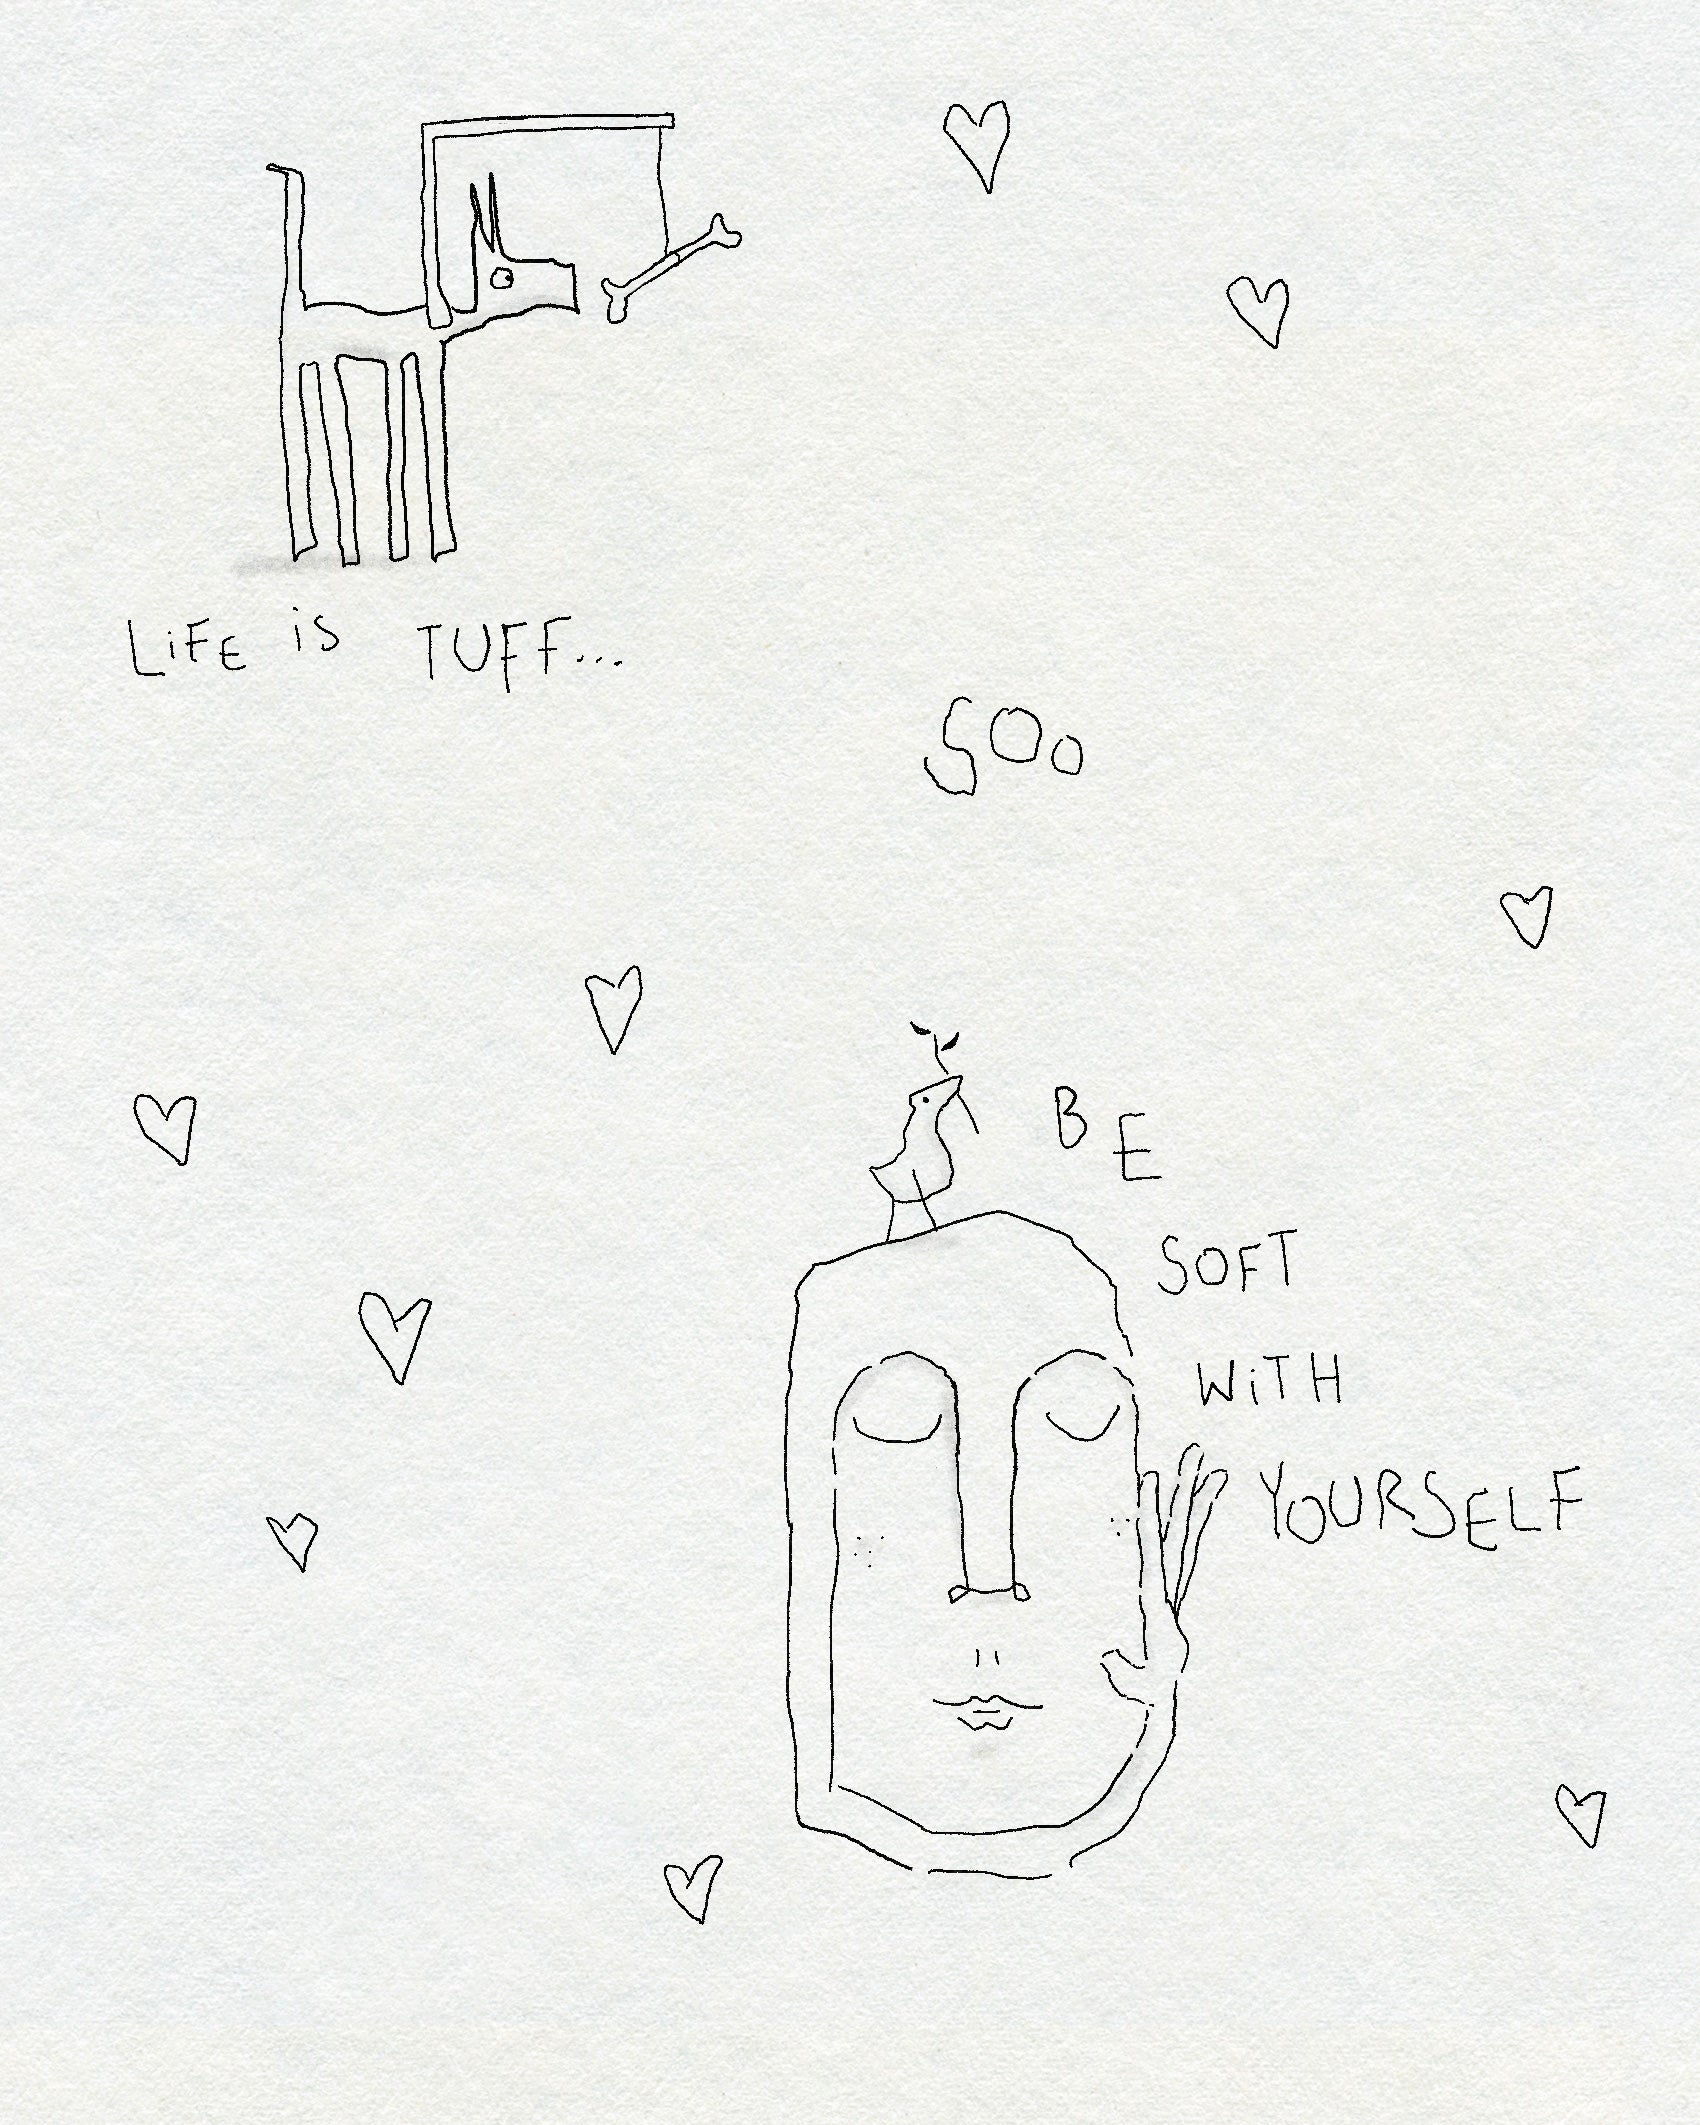 LiFE iS TUFF...
SOo
BE
SOFT
WiTH
YOURSELF